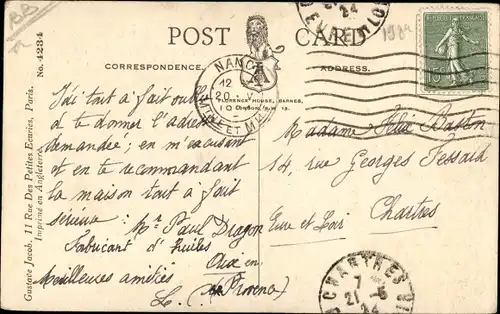 BB
No. 4234
Gustave Jacob, 11 Rue Des Petites Ecuries, Paris.
Imprimé en Angleterre.
POST CARD
CORRESPONDENCE.
ADDRESS.
FLORENCE HOUSE, BARNES,
NANCY
12
20 - V
MTHE ET MLLE
24
1924
REPUBLIQUE FRANÇAISE
15
J'ai tout à fait oublié
de te donner l'adresse
demandée; en m'excusant
et en te recommandant
la maison tout à fait
sérieuse:
Mr Paul Dragon
Fabricant d'huiles
Aix en
Provence
Meilleures amitiés
L.
Madame Félix Baston
14, rue Georges Fessard
Chartres
Eure et Loir
CHARTRES
7
21 - 5
24